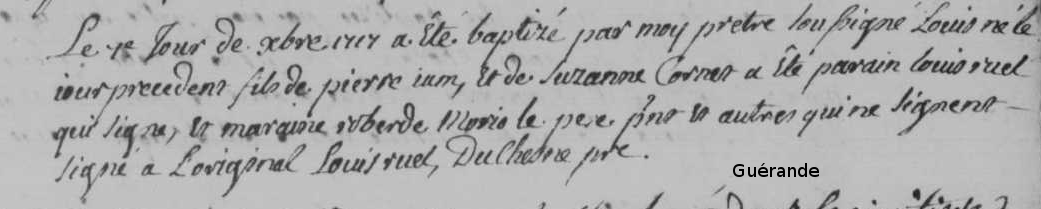 Le 7e Jour de xbre 1717 a Eté baptizé par moy pretre soussigné Louis né le
iour precedent fils de pierre iam, Et de Suzanne Cornet a Eté parain louis ruel
qui signe, Et maraine roberde Morio le pere pnt Et autres qui ne signent
signé a L'original Louis ruel, DuChesne pre.
Guérande